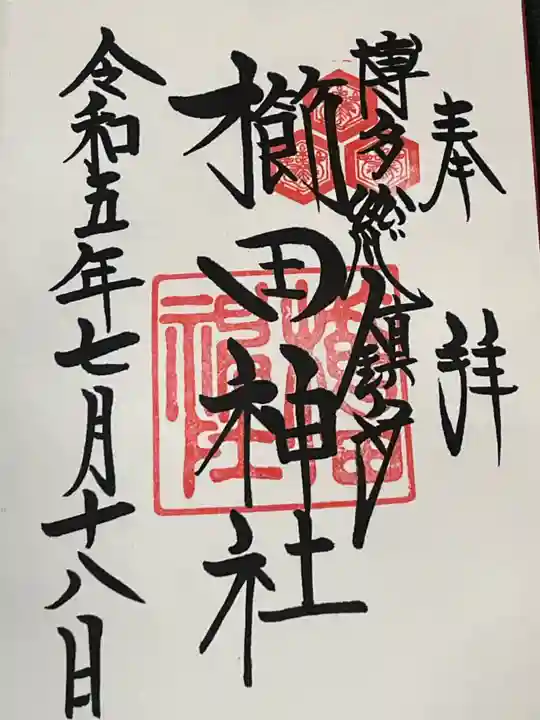 奉拝
博多総鎮守
櫛田神社
令和五年七月十八日
櫛田神社